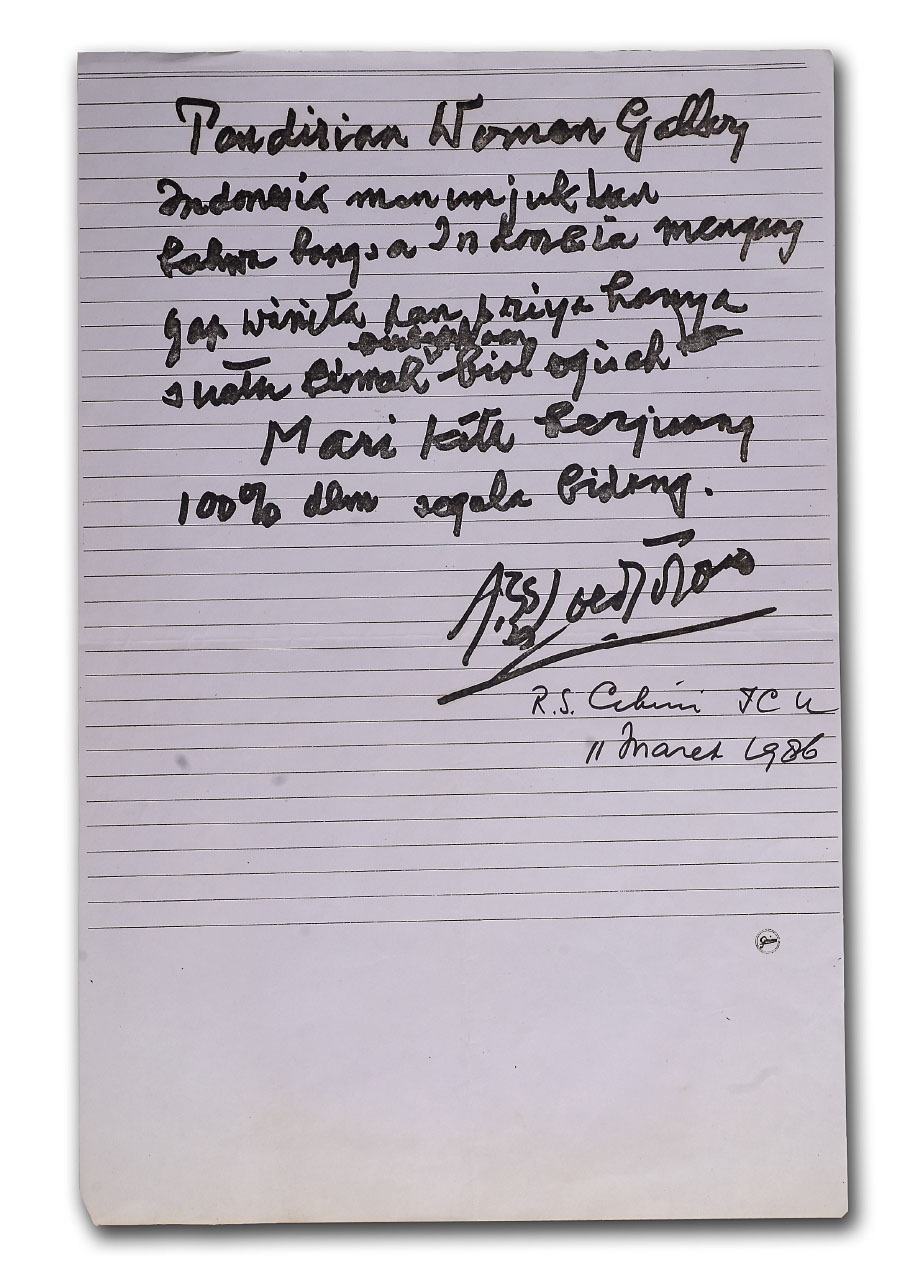 Pendirian Woman Gallery
Indonesia menunjukkan
bahwa bangsa Indonesia mengang
gap wanita dan priya hanya
suatu biologisch
Mari kita berjuang
100% dlm segala bidang.
R.S. Cikini ICU
11 Maret 1986